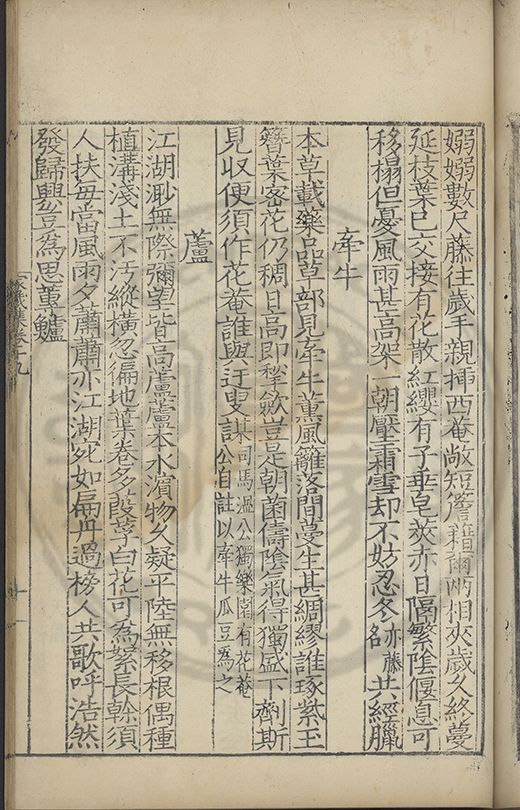 嫋嫋數尺藤往歲手親揷西菴敞短簷藉爾兩相夾歲久終蔓
延枝葉已交接有花散紅纓有子垂皂莢亦曰隔繁隂偃息可
移榻但憂風雨甚高架一朝壓霜雪却不妨忍冬亦藤名共經臘
牽牛
本草載藥品草部見牽牛薫風籬落間蔓生甚綢繆誰琢紫玉
簪葉密花仍稠日髙即揫歛豈是朝菌儔隂氣得獨盛下劑斯
見収便須作花菴誰與迂叟謀司馬溫公獨樂園有花菴公自註以牽牛瓜豆為之
蘆
江湖渺無際彌望皆高蘆蘆本水濱物久疑平陸無移根偶種
植溝淺土不汚縱橫忽徧地葉卷多葭莩白花可為絮長幹須
人扶每當風雨夕蕭蕭亦江湖宛如扁舟過榜人共歌呼浩然
發歸興豈為思蓴鱸
家藏集卷十九